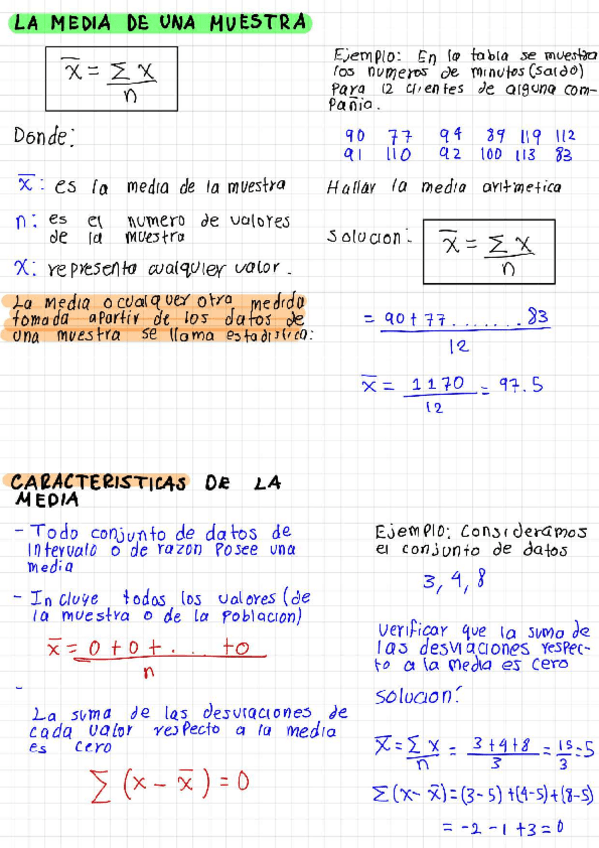 LA MEDIA DE UNA MUESTRA
x̄ = Σ x / n
Donde:
x̄: es la media de la muestra
n: es el numero de valores
de la muestra
X: representa cualquier valor.
La media o cualquer otra medida
tomada apartir de los datos de
una muestra se llama estadistica:
Ejemplo: En la tabla se muestra
los numeros de minutos (saldo)
Para 12 clientes de alguna com-
pañia.
90 77 94 89 119 112
91 110 92 100 113 83
Hallar la media aritmetica
Solucion: x̄ = Σ x / n
= 90+77.......83 / 12
x̄ = 1170 / 12 = 97.5
CARACTERISTICAS DE LA
MEDIA
- Todo conjunto de datos de
intervalo o de razon Posee una
media
- Incluye todos los valores (de
la muestra o de la poblacion)
x̄ = 0 + 0 + . . . +0 / n
-
La suma de las desviaciones de
cada valor respecto a la media
es cero
Σ (x - x̄) = 0
Ejemplo: Consideramos
el conjunto de datos
3, 4, 8
Verificar que la suma de
las desviaciones respec-
to a la media es cero
Solucion:
x̄ = Σ x / n = 3+4+8 / 3 = 15 / 3 = 5
Σ(x- x̄) = (3-5)+(4-5)+(8-5)
= -2-1+3=0